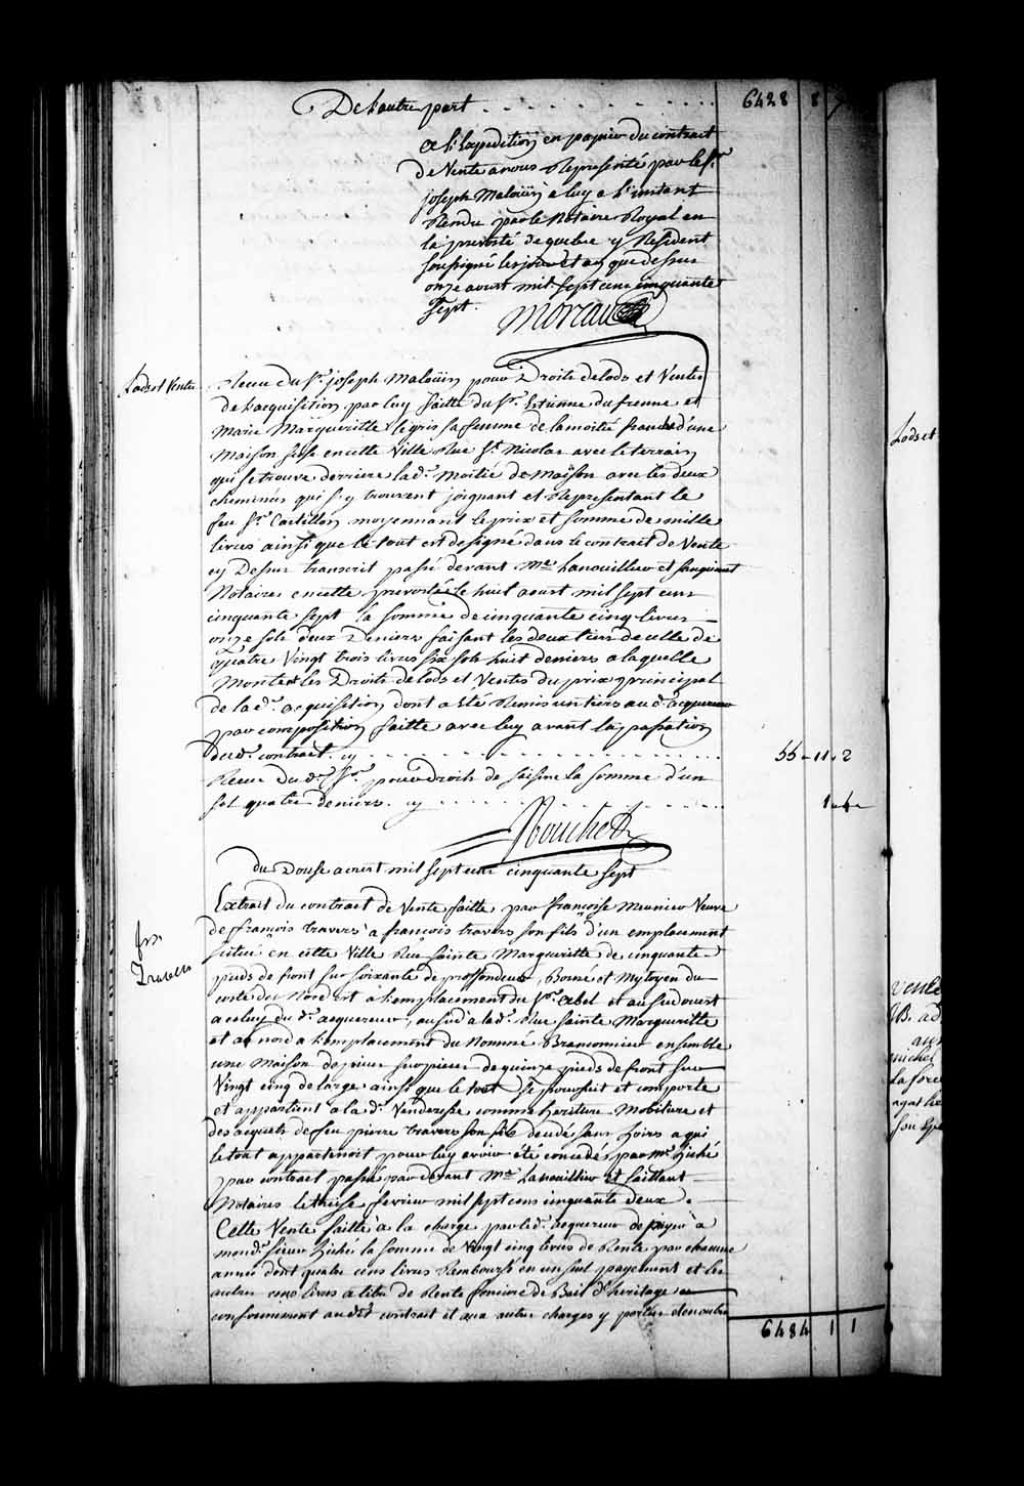 De l'autre part . . . . . . . . . . 6428 8 7
et l'Expedition en papier du contract
de Vente a nous Representé par le Sr.
joseph Malouin a luy a l'instant
Rendu par le Notaire Royal en
la prevosté de quebec y Resident
soussigné les jour et an que dessus
onze aoust mil sept cens cinquante
sept. Moreau
Lods et Ventes
Receu du Sr. joseph Malouin pour Droits de lods et Ventes
de L'acquisition par luy faitte du Sr. Estienne dufresne et
Marie Margueritte legris sa femme de la moitié franche d'une
Maison size en cette Ville Rue St. Nicolas avec le terrain
qui se trouve derriere lad. Moitié de Maison avec les deux
cheminées qui s'y trouvent joignant et Representant le
feu Sr. Castillon moyennant le prix et somme de mille
livres ainsi que le tout est designé dans le contract de Vente
cy Dessus transcrit passé devant Me. Lanouillier et Sanguinet
Notaires en cette prevosté le huit aoust mil sept cens
cinquante sept la somme de cinquante cinq livres
onze sols deux Deniers faisant les deux tiers de celle de
quatre Vingt trois livres six sols huit deniers a laquelle
Montent les Droits de lods et Ventes du prix principal
de lad. acquisition dont a Eté Remis un tiers aud. acquereur
par composition faitte avec luy avant la passation
dud. contract. cy . . . . . . . . . . 55 - 11 - 2
Receu du d. Sr. pour droits de saisine la somme d'un
sol quatre deniers. cy . . . . . . . . 1 - 4
Bouchet
du Douse aoust mil sept cens cinquante sept
frs.
Travers
Extrait du contract de Vente faitte par françoise Meunier Veuve
de françois travers a françois travers son fils d'un emplacement
scitué en cette Ville Rue Sainte Margueritte de cinquante
pieds de front sur soixante de proffondeur, Borné et Mytoyen du
costé du Nord est à L'emplacement du Sr. Abel et au sud ouest
a celuy du d. acquereur, au sud a lad. Rue Sainte Margueritte
et au nord a L'emplacement du Nommé Branconnier ensemble
une Maison de pieux sur pieux de quinze pieds de front sur
Vingt cinq de large ainsi que le tout se poursuit et comporte
et appartient a la d. Venderesse comme heritiere Mobiliere et
des acquets de feu pierre travers son fils decedé sans hoirs a qui
le tout appartenoit pour luy avoir été concedés par Mr. hiché
par contract passé par devant Me. Lanouillier et Saillant
Notaires le treise fevrier mil sept cens cinquante deux.
Cette Vente faitte à la charge par led. acquereur de payer à
mond. sieur hiché la somme de Vingt cinq livres de Rente par chacune
année dont quatre cens livres Remboursés en un seul payement et les
autres cens livres a titre de Rente fonciere de Bail d'heritage
conformement au dit contract et aux autres charges y portées d'en outre
6484 1 1
Lods et
Vente